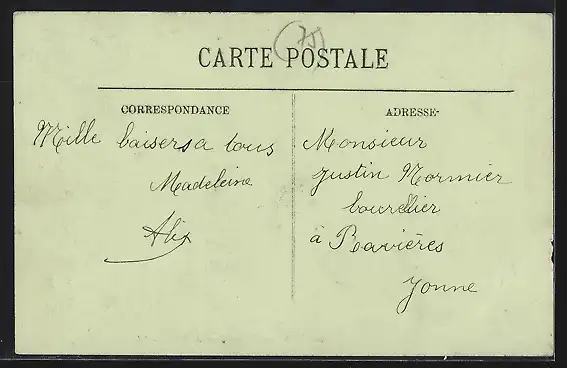 75
CARTE POSTALE
CORRESPONDANCE
Mille baisers a tous
Madeleine
Alix
ADRESSE
Monsieur
Justin Normier
bourrelier
à Ravières
Yonne